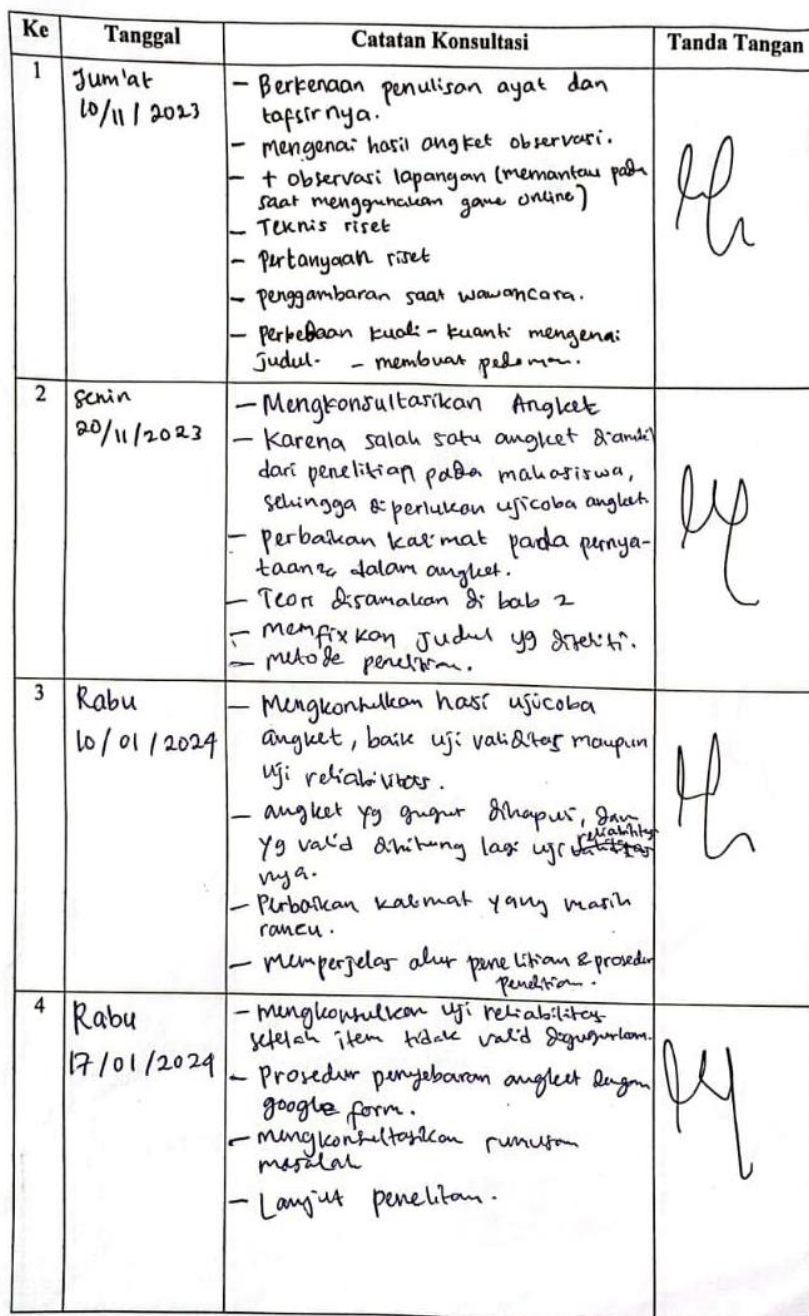 Ke Tanggal Catatan Konsultasi Tanda Tangan
1
Jum'at
10/11/2023
- Berkenaan penulisan ayat dan
tafsirnya.
- mengenai hasil angket observasi.
- + observasi lapangan (memantau pada
saat menggunakan game online)
- Teknis riset
- Pertanyaan riset
- penggambaran saat wawancara.
- Perbedaan kuali - kuanti mengenai
judul. - membuat pedoman.
2
Senin
20/11/2023
- Mengkonsultasikan Angket
- Karena salah satu angket diambil
dari penelitian pada mahasiswa,
sehingga diperlukan ujicoba angket.
- perbaikan kalimat pada pernya-
taan2 dalam angket.
- Teori disamakan di bab 2
- memfixkan judul yg diteliti.
- metode penelitian.
3
Rabu
10/01/2024
- Mengkonsulkan hasil ujicoba
angket, baik uji validitas maupun
uji reliabilitas.
- angket yg gugur dihapus, dan
yg valid dihitung lagi uji validitas reliabilitas
nya.
- Perbaikan kalimat yang masih
rancu.
- memperjelas alur penelitian & prosedur
penelitian.
4
Rabu
17/01/2024
- mengkonsulkan uji reliabilitas
setelah item tidak valid digugurkan.
- Prosedur penyebaran angket dengan
google form.
- mengkonsultasikan rumusan
masalah
- Lanjut penelitan.